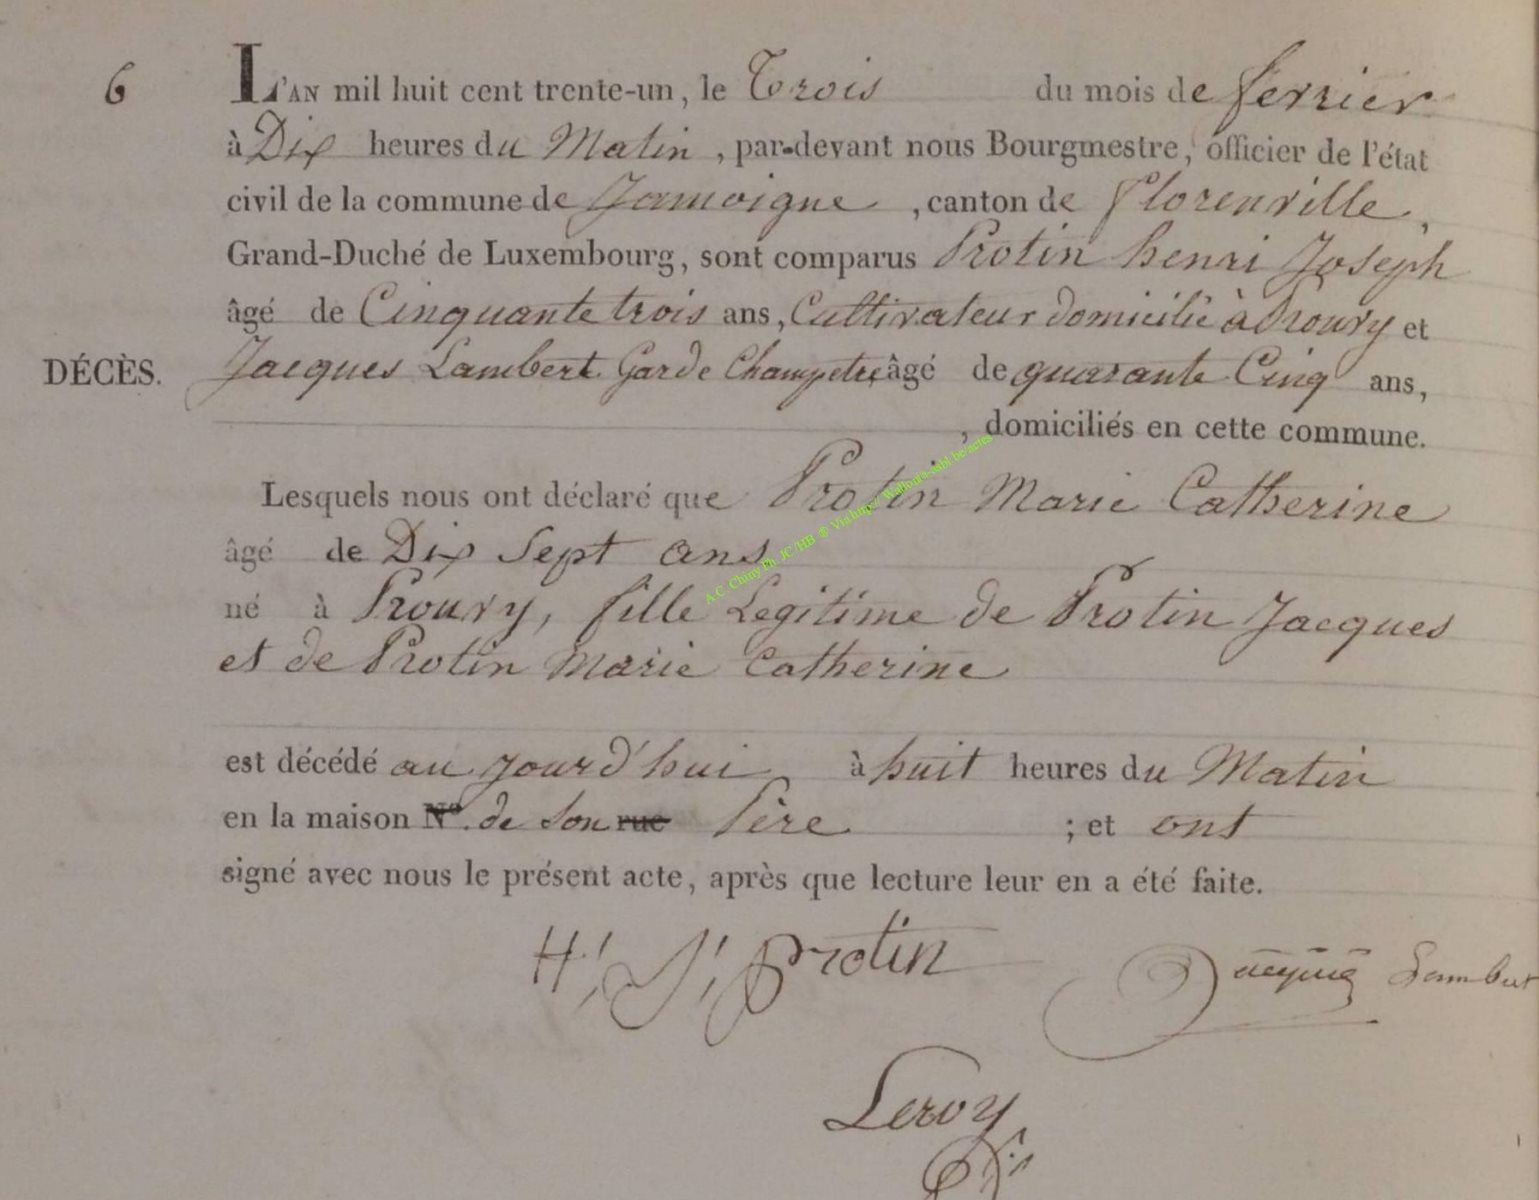 6
L'AN mil huit cent trente-un, le Trois du mois de fevrier
à Dix heures du Matin, par-devant nous Bourgmestre, officier de l'état
civil de la commune de Jamoigne, canton de Florenville,
Grand-Duché de Luxembourg, sont comparus Protin henri Joseph
âgé de Cinquante trois ans, Cultivateur domicilié à Prouvy et
DÉCÈS. Jacques Lambert Garde Champetre âgé de quarante Cinq ans,
, domiciliés en cette commune.
Lesquels nous ont déclaré que Protin Marie Catherine
âgé de Dix Sept ans
né à Prouvy, fille Legitime de Protin Jacques
et de Protin Marie Catherine
est décédé aujourd'hui à huit heures du Matin
en la maison N° de Son rue Père ; et ont
signé avec nous le présent acte, après que lecture leur en a été faite.
H, J, Protin Jacques Lambert
Leroy
A.C. Chiny Ph. JC/HB ® Via http://Wallonia-asbl.be/actes